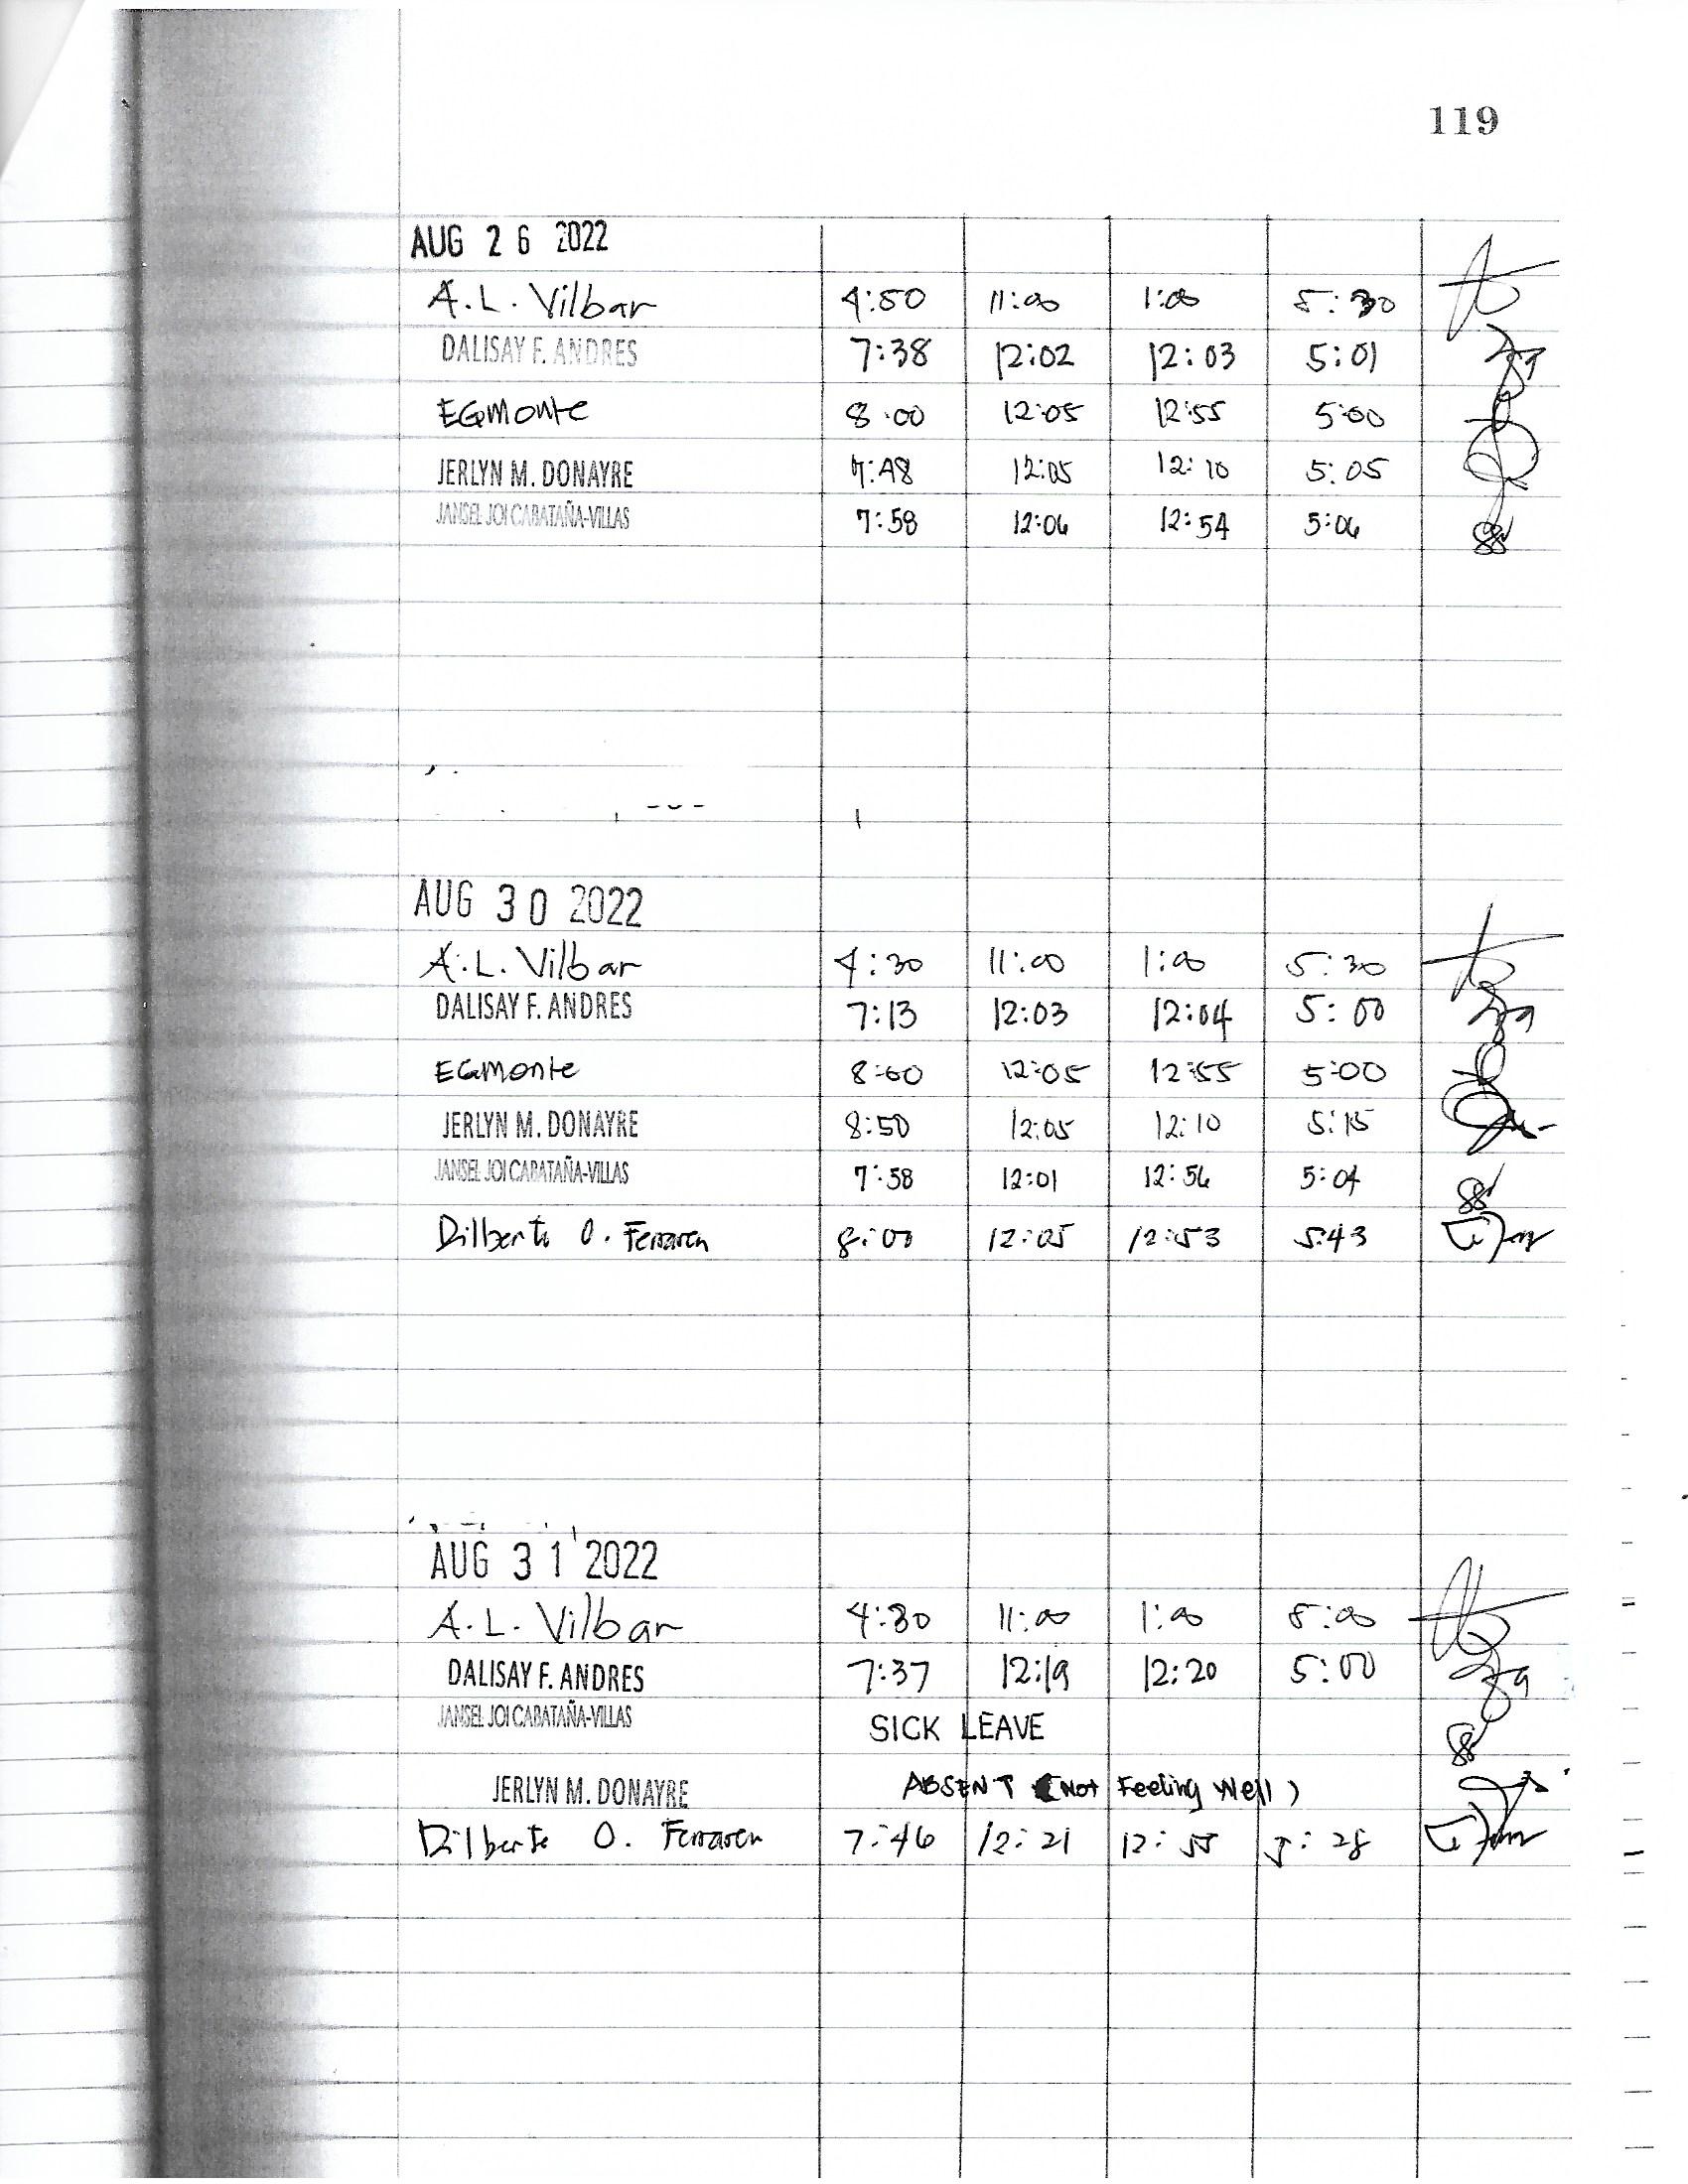 119
AUG 26 2022
A.L. Vilbar 4:50 11:00 1:00 5:30
DALISAY F. ANDRES 7:38 12:02 12:03 5:01
EGmonte 8:00 12:05 12:55 5:00
JERLYN M. DONAYRE 7:48 12:05 12:10 5:05
JANSEL JOI CABATAÑA-VILLAS 7:58 12:06 12:54 5:06
AUG 30 2022
A.L. Vilbar 4:30 11:00 1:00 5:30
DALISAY F. ANDRES 7:13 12:03 12:04 5:00
EGmonte 8:00 12:05 12:55 5:00
JERLYN M. DONAYRE 8:50 12:05 12:10 5:15
JANSEL JOI CABATAÑA-VILLAS 7:58 12:01 12:56 5:04
Dilberto O. Ferraren 8:00 12:05 12:53 5:43
AUG 31 2022
A.L. Vilbar 4:30 11:00 1:00 5:00
DALISAY F. ANDRES 7:37 12:19 12:20 5:00
JANSEL JOI CABATAÑA-VILLAS SICK LEAVE
JERLYN M. DONAYRE ABSENT (Not Feeling Well)
Dilberto O. Ferraren 7:46 12:21 12:55 5:28